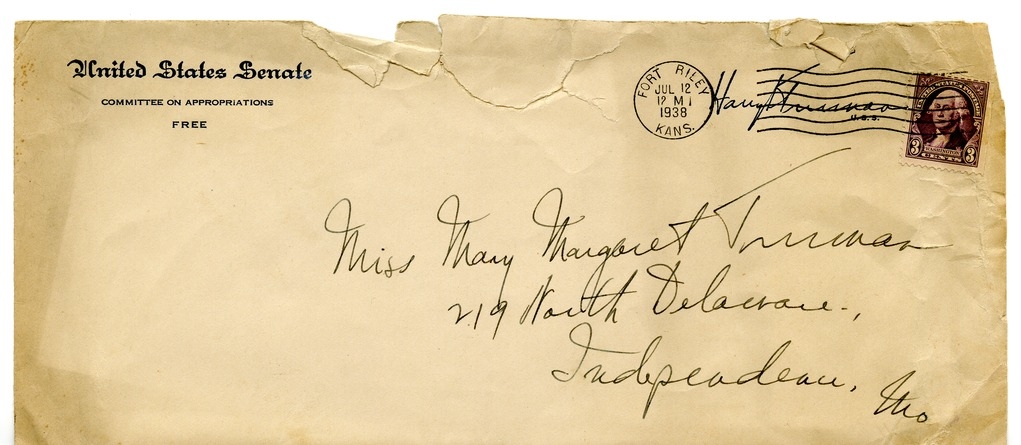 United States Senate
COMMITTEE ON APPROPRIATIONS
FREE
FORT RILEY
JUL 12
12 M
1938
KANS.
Harry Truman
U.S.S.
WASHINGTON
3 3
Miss Mary Margaret Truman
219 North Delaware.,
Independence, Mo